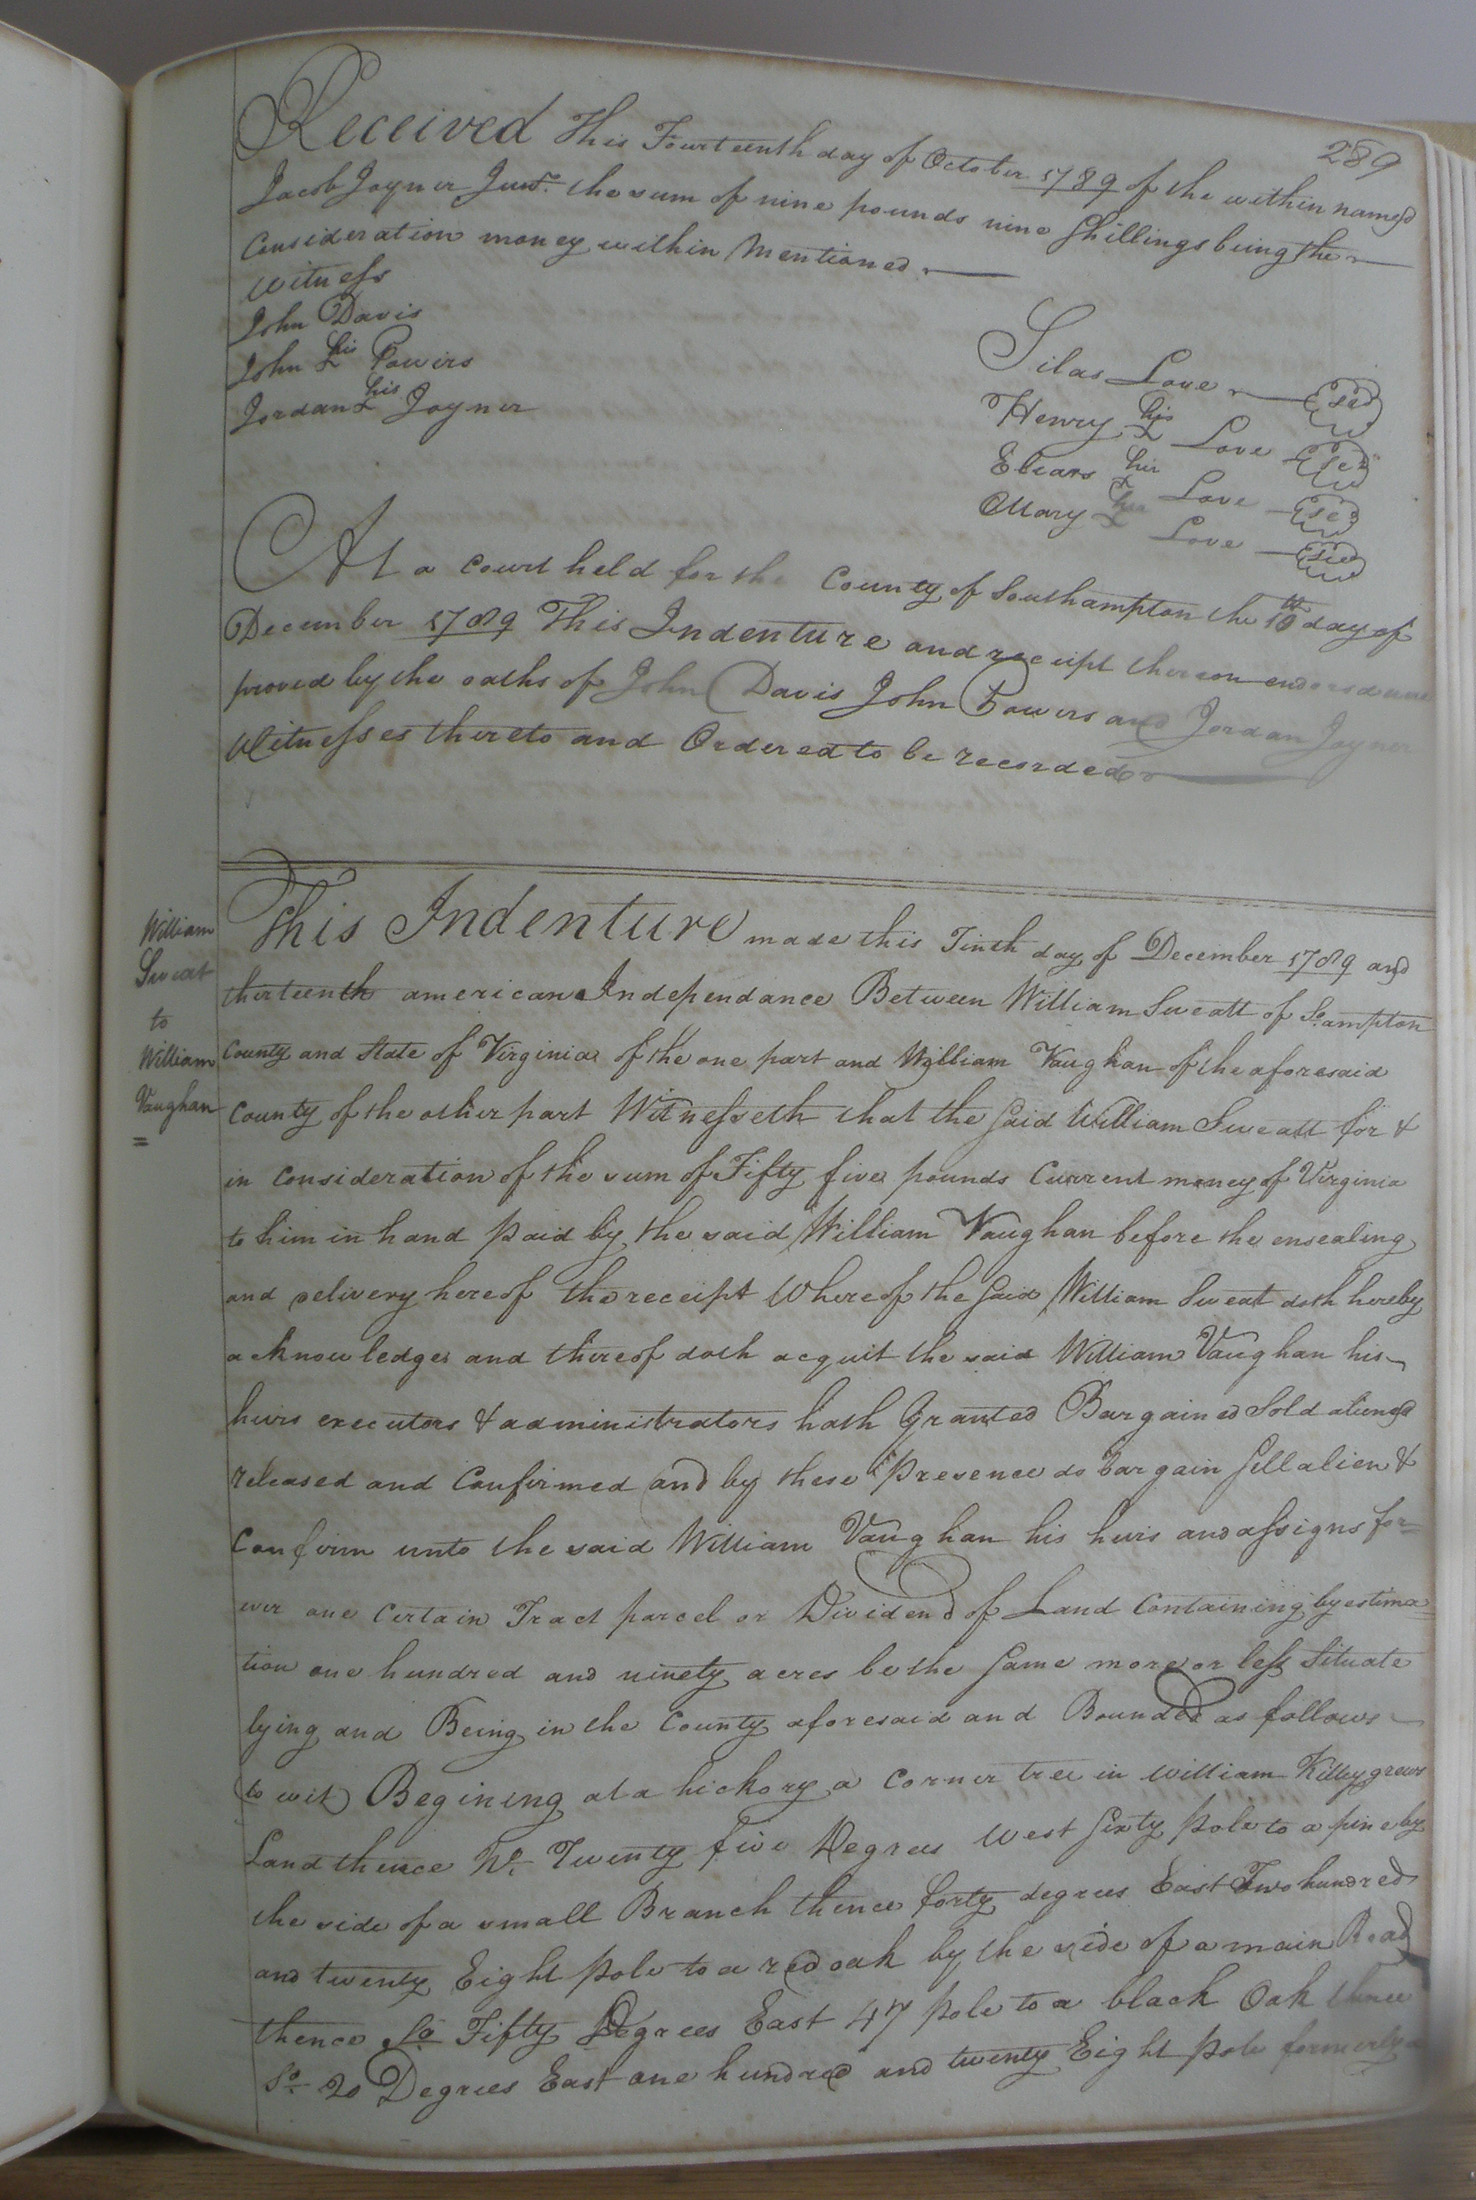 289
Received This Fourteenth day of October 1789 of the within named
Jacob Joyner Junr. the sum of nine pounds nine Shillings being the
Consideration money within Mentioned
Witness
John Davis
John his x Powers
Jordan his x Joyner
Silas Love Sed
Henry his x Love Sed
her x Love Sed
Mary her x Love Sed
At a Court held for the County of Southampton the 10th day of
December 1789 This Indenture and receipt thereon endorsed was
proved by the oaths of John Davis John Powers and Jordan Joyner
Witnesses thereto and Ordered to be recorded
William
Sweat
to
William
Vaughan
=
This Indenture made this Tinth day of December 1789 and
thirteenth american Independance Between William Sweatt of So.ampton
County and State of Virginia of the one part and William Vaughan of the aforesaid
County of the other part Witnesseth that the Said William Sweatt for &
in Consideration of the sum of Fifty five pounds Current money of Virginia
to him in hand paid by the said William Vaughan before the ensealing
and delivery hereof the receipt Whereof the Said William Sweat doth hereby
acknowledge and thereof doth acquit the said William Vaughan his
heirs executors & administrators hath Granted Bargained Sold aliened
released and Confirmed and by these Presence do bargain Sell alien &
Confirm unto the said William Vaughan his heirs and assigns for=
ever one Certain Tract parcel or Dividend of Land Containing by estima=
tion one hundred and ninety acres be the Same more or less Situate
lying and Being in the County aforesaid and Bounded as follows
(to wit) Begining at a hickory a Corner tree in William Killygrews
Land thence No. Twenty five Degrees West Sixty pole to a pine by
the side of a small Branch thence forty degrees East Two hundred
and twenty Eight pole to a red oak by the side of a main Road
thence So Fifty Degrees East 47 pole to a black Oak thence
So. 20 Degrees East one hundred and twenty Eight pole formerly